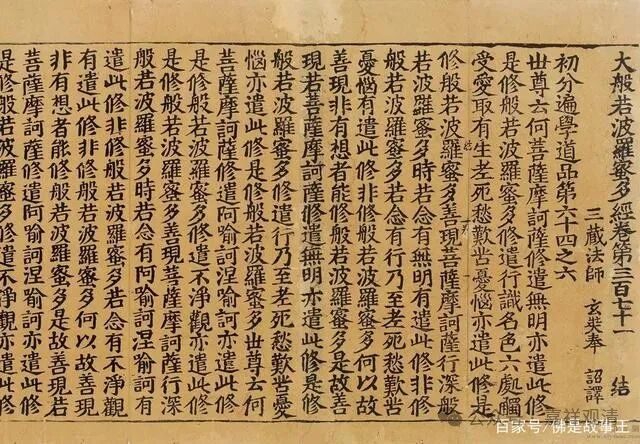 大般若波羅蜜多經卷第三百七十一 結
三藏法師 玄奘奉 詔譯
初分遍學道品第六十四之六
世尊云何菩薩摩訶薩修遣無明亦遣此修
是修般若波羅蜜多修遣行識名色六處觸
受愛取有生老死愁歎苦憂惱亦遣此修是
修般若波羅蜜多善現菩薩摩訶薩修行深般
若波羅蜜多時若念有無明有遣此修非修
般若波羅蜜多若念有行乃至老死愁歎苦
憂惱有遣此修非修般若波羅蜜多何以故
善現非有想者能修般若波羅蜜多是故善
現若菩薩摩訶薩修遣無明亦遣此修是修
般若波羅蜜多修遣行乃至老死愁歎苦憂
惱亦遣此修是修般若波羅蜜多世尊云何
菩薩摩訶薩修遣阿喻訶涅喻訶亦遣此修
是修般若波羅蜜多修遣不淨觀亦遣此修
是修般若波羅蜜多善現菩薩摩訶薩修行深
般若波羅蜜多時若念有阿喻訶涅喻訶有
遣此修非修般若波羅蜜多若念有不淨觀
有遣此修非修般若波羅蜜多何以故善現
非有想者能修般若波羅蜜多是故善現若
菩薩摩訶薩修遣阿喻訶涅喻訶亦遣此修
是修般若波羅蜜多修遣不淨觀亦遣此修
公众号·嘉祥观清
百家号/佛是故事王